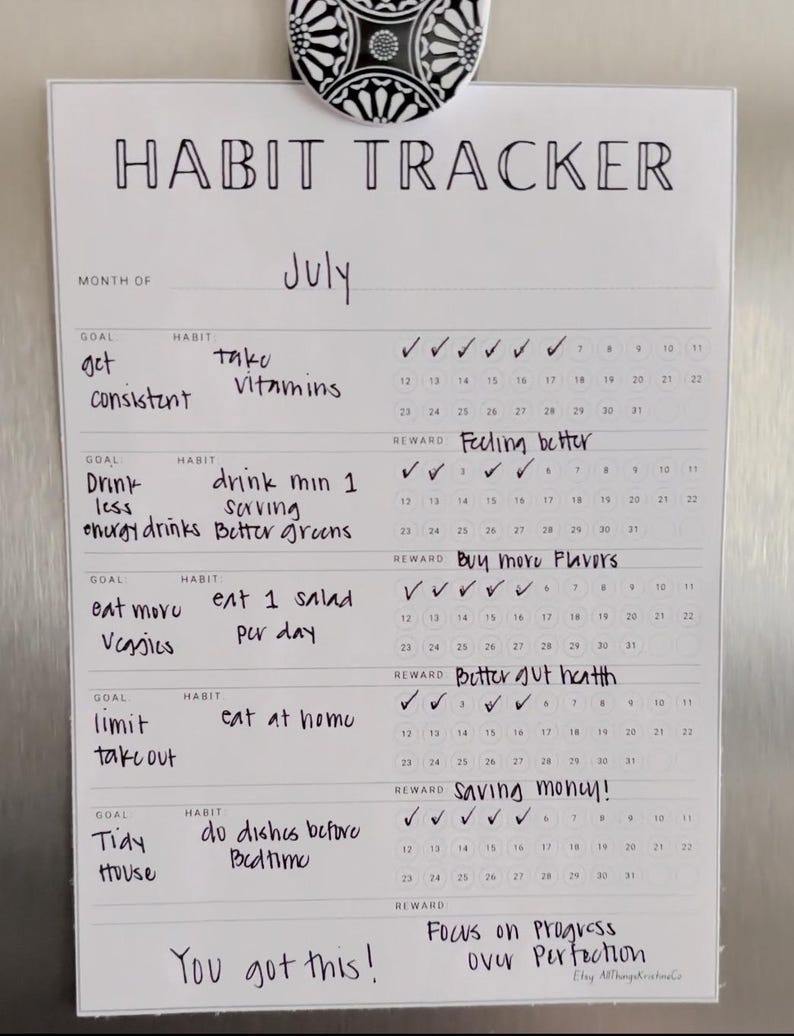 HABIT TRACKER
MONTH OF July
GOAL: HABIT:
get take
consistent vitamins
✓ ✓ ✓ ✓ ✓ ✓ 7 8 9 10 11
12 13 14 15 16 17 18 19 20 21 22
23 24 25 26 27 28 29 30 31
REWARD: Feeling better
GOAL: HABIT:
Drink drink min 1
less serving
energy drinks Better greens
✓ ✓ 3 ✓ ✓ 6 7 8 9 10 11
12 13 14 15 16 17 18 19 20 21 22
23 24 25 26 27 28 29 30 31
REWARD: Buy more Flavors
GOAL: HABIT:
eat more eat 1 salad
Veggies per day
✓ ✓ ✓ ✓ ✓ 6 7 8 9 10 11
12 13 14 15 16 17 18 19 20 21 22
23 24 25 26 27 28 29 30 31
REWARD: Better gut health
GOAL: HABIT:
limit eat at home
takeout
✓ ✓ 3 ✓ ✓ 6 7 8 9 10 11
12 13 14 15 16 17 18 19 20 21 22
23 24 25 26 27 28 29 30 31
REWARD: Saving money!
GOAL: HABIT:
Tidy do dishes before
House Bedtime
✓ ✓ ✓ ✓ ✓ 6 7 8 9 10 11
12 13 14 15 16 17 18 19 20 21 22
23 24 25 26 27 28 29 30 31
REWARD:
You got this!
Focus on Progress
over Perfection
Etsy AllThingsKristinaCo